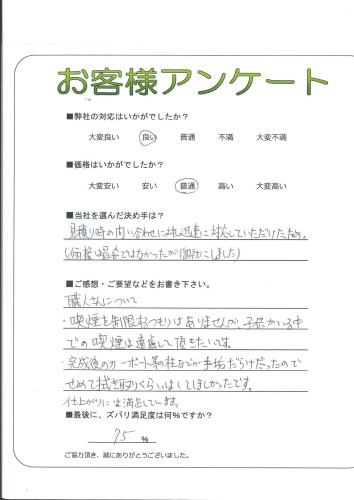 お客様アンケート
■弊社の対応はいかがでしたか?
大変良い 良い 普通 不満 大変不満
■価格はいかがでしたか?
大変安い 安い 普通 高い 大変高い
■当社を選んだ決め手は?
見積り時の問い合わせに対し迅速に対応していただけたため。
(価格は最安ではなかったが御社にしました)
■ご感想・ご要望などをお書き下さい。
職人さんについて
・喫煙を制限するつもりはありませんが、子供がいる中
での喫煙は遠慮して頂きたいです。
・完成後のカーポート等の柱などが手垢だらけだったので
せめて拭き取りくらいはしてほしかったです。
仕上がりには満足しています。
■最後に、ズバリ満足度は何%ですか?
75 %
ご協力頂き、誠にありがとうございました。